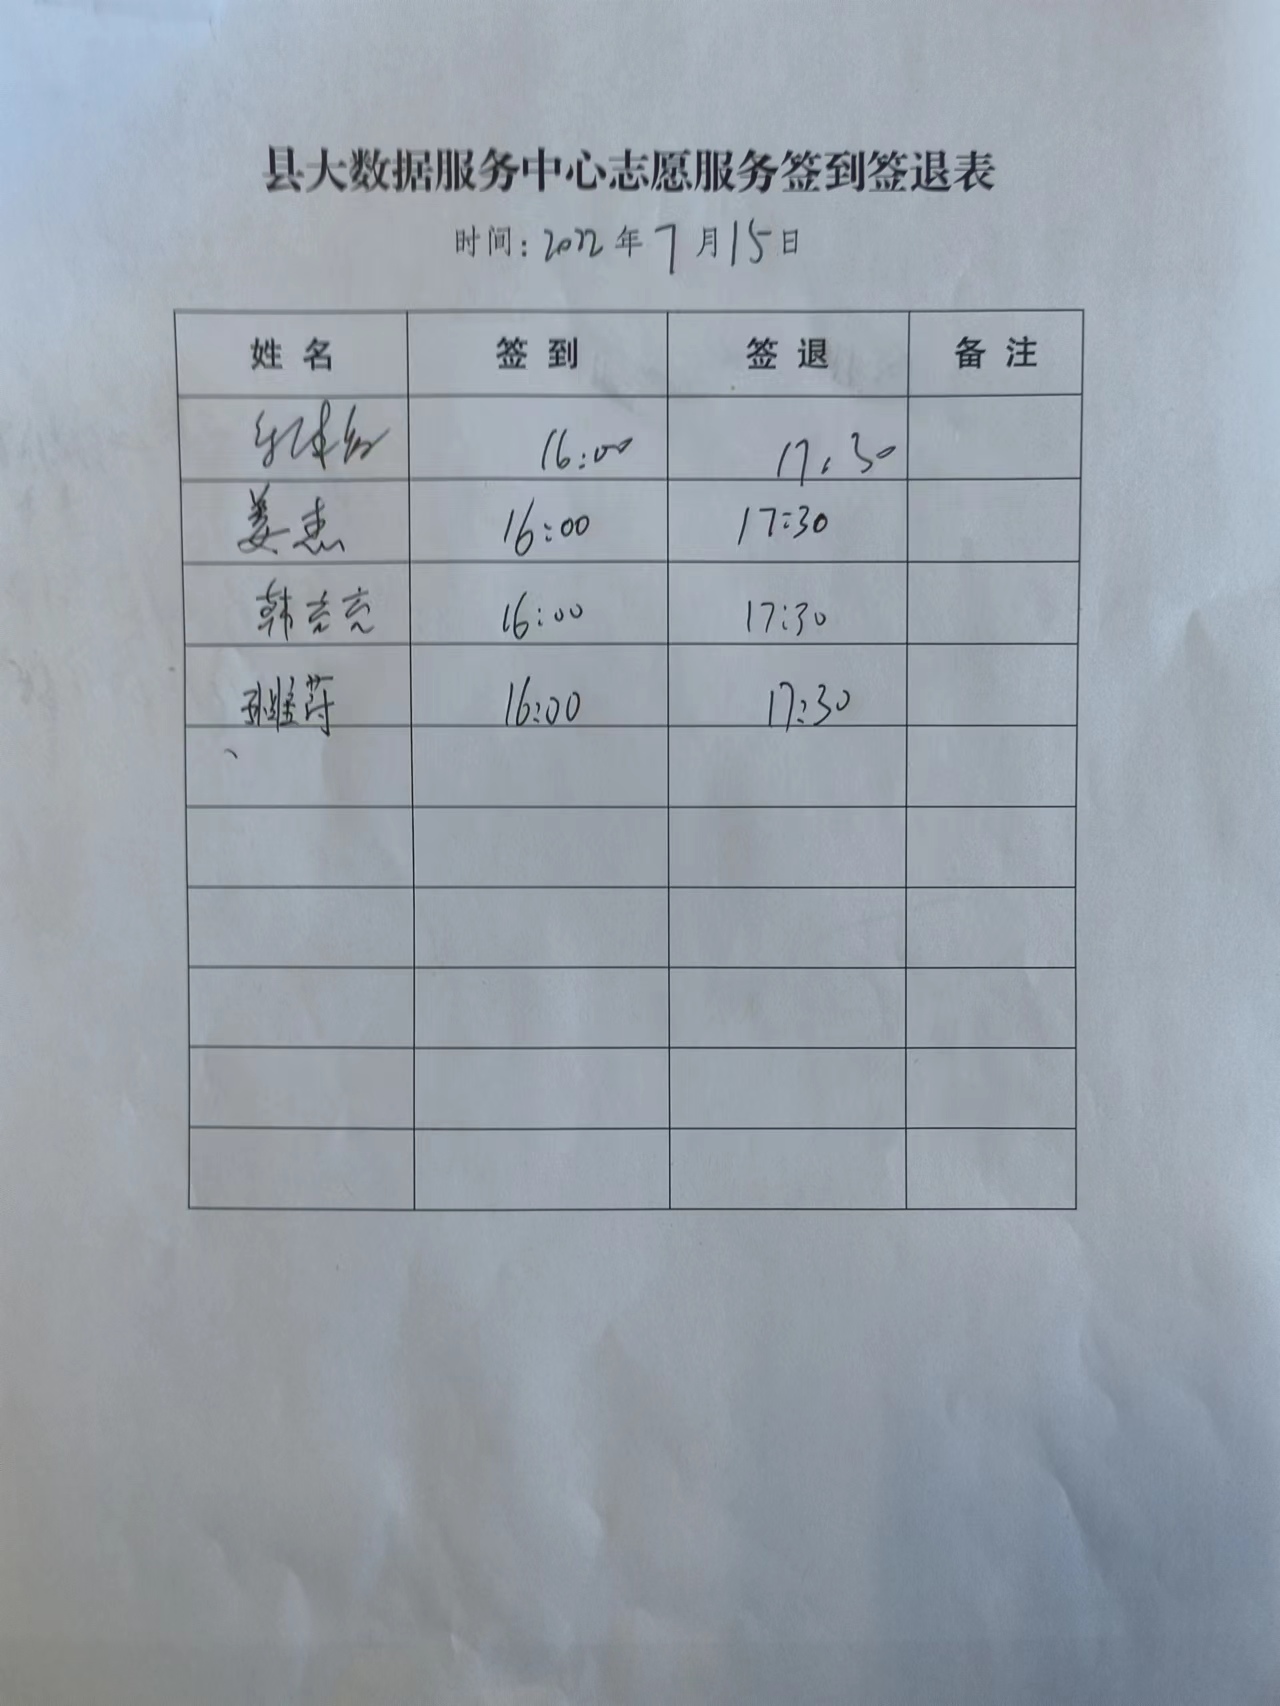 县大数据服务中心志愿服务签到签退表
时间：2022年7月15日
姓名 签到 签退 备注
16:00 17:30
姜杰 16:00 17:30
韩亮亮 16:00 17:30
16:00 17:30